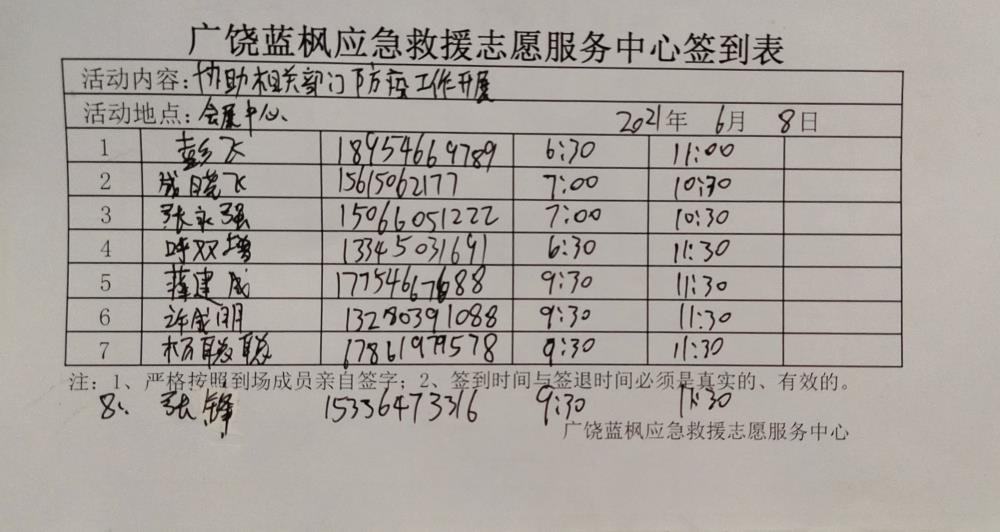 广饶蓝枫应急救援志愿服务中心签到表
活动内容:协助相关部门防疫工作开展
活动地点:会展中心、 2021年 6月 8日
1 彭飞 18954669789 6:30 11:00
2 成晓飞 15615062177 7:00 10:30
3 张永强 15066051222 7:00 10:30
4 呼双增 13345031691 6:30 11:30
5 薛建成 9:30 11:30
6 许成明 13280391088 9:30 11:30
7 杨聪聪 17861979578 9:30 11:30
注:1、严格按照到场成员亲自签字;2、签到时间与签退时间必须是真实的、有效的。
8、 张锋 15336473316 9:30 11:30
广饶蓝枫应急救援志愿服务中心